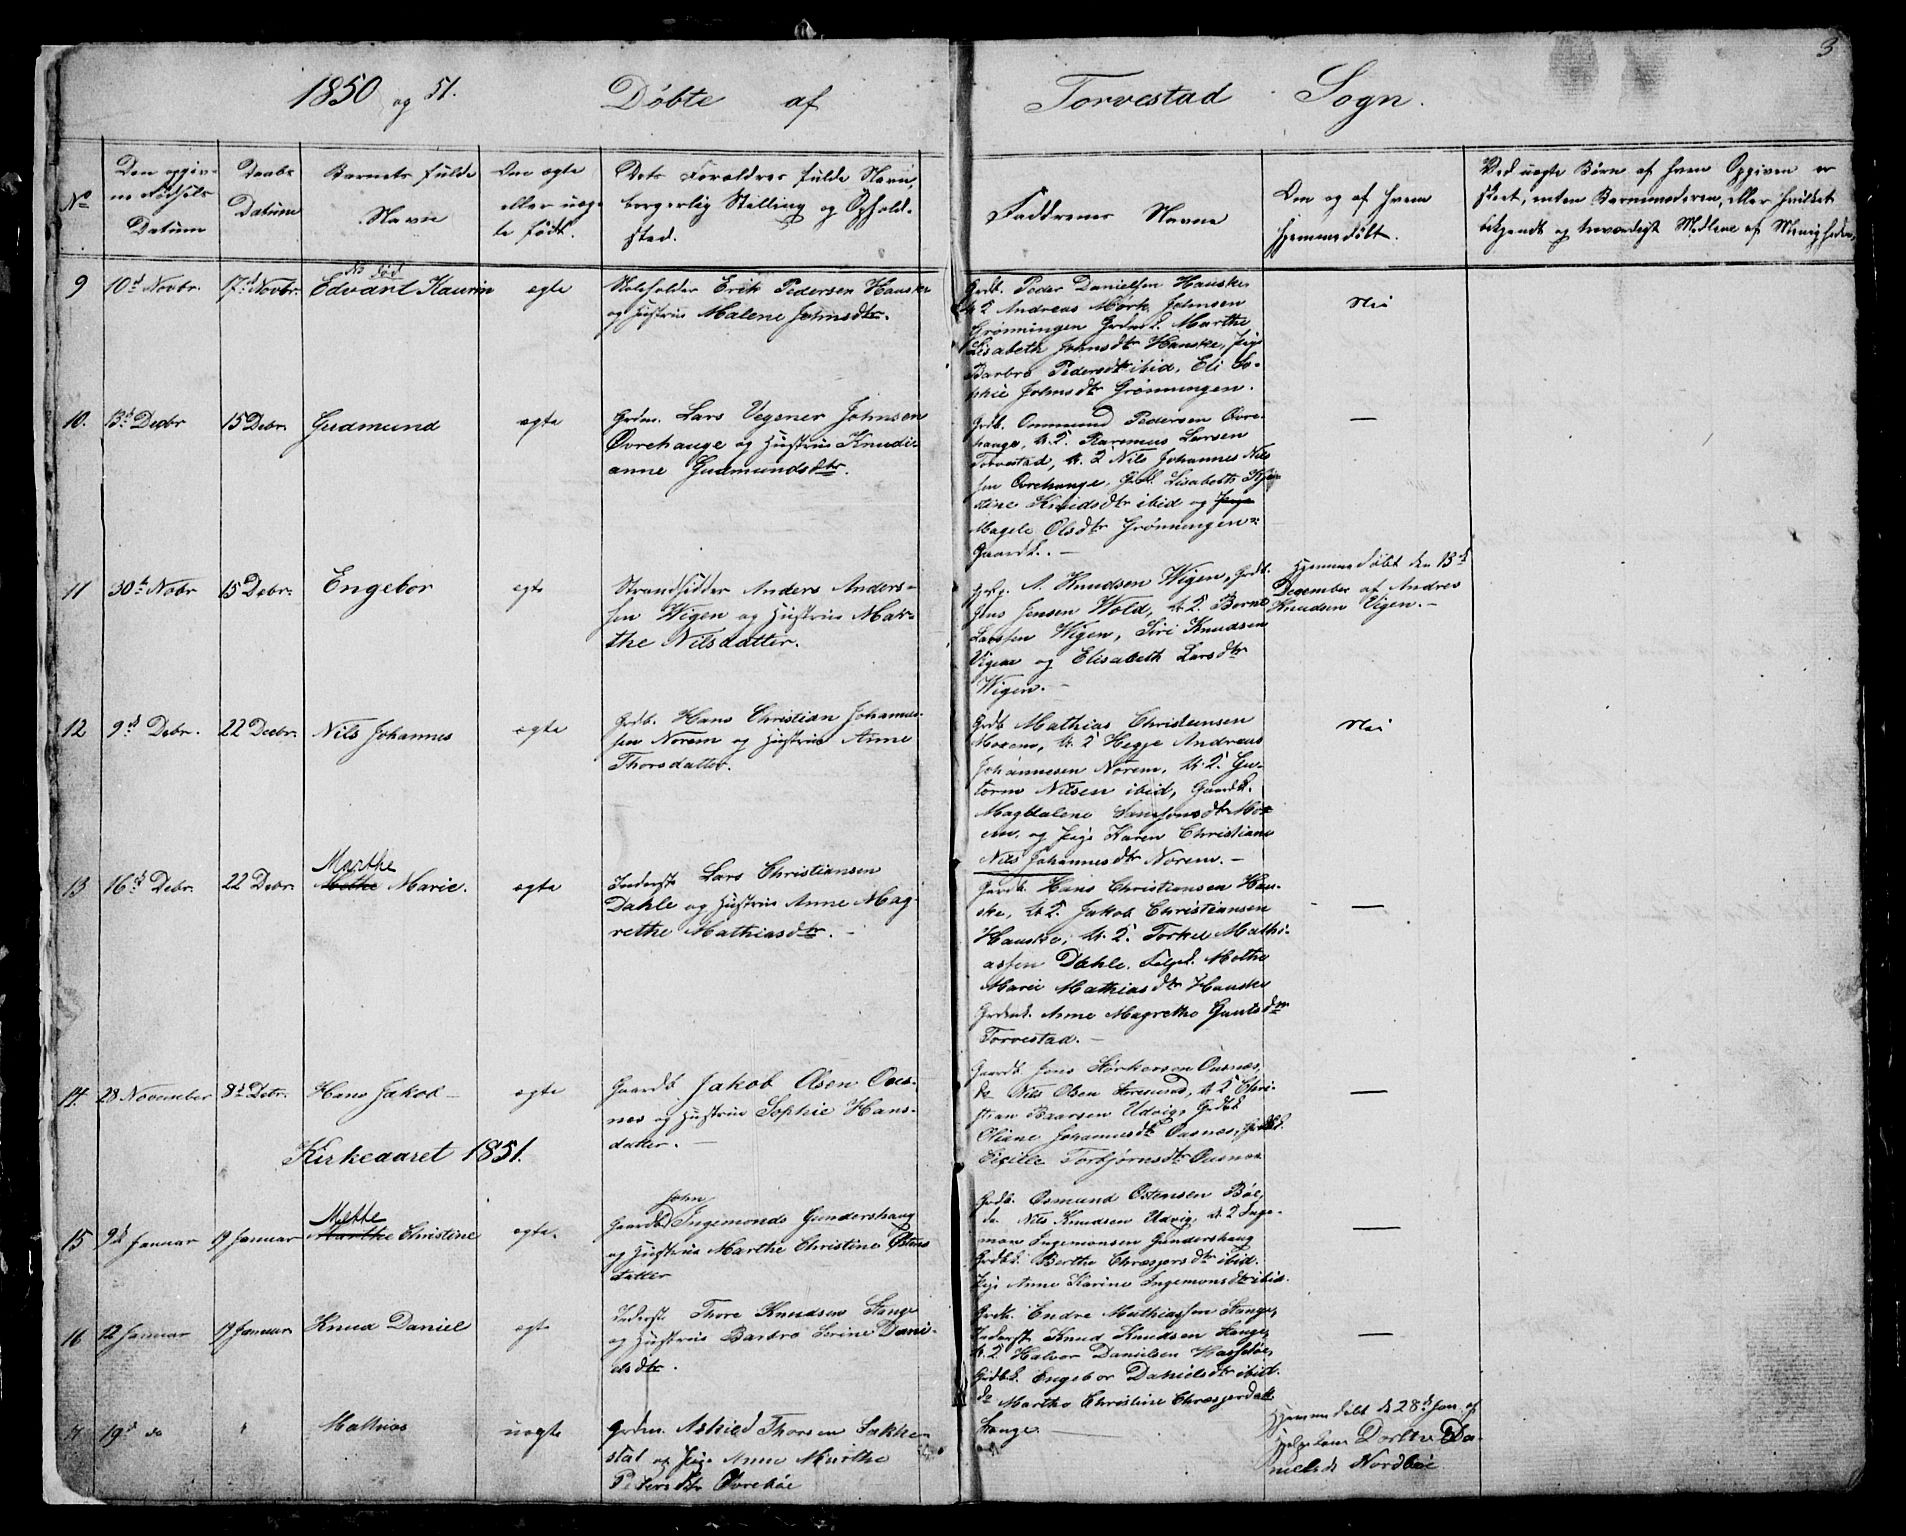 3
1850 og 51. Döbte af Torvestad Sogn.
No
Den opgiv-
ne Födsels
Datum
Daabs
Datum
Barnets fulde
Navn
Om ægte
eller uæg-
te födt.
Dets Forældres fulde Navn,
borgerlig Stilling og Ophold-
sted.
Faddrenes Navne
Om og af hvem
hjemmedöbt.
Ved uægte Börn af hvem Opgiven er
skeet, enten Barnemoderen, eller hvilket
bekjendt og troværdigt Medlem af Menigheden.
9 10d Novbr. 17d Novbr. Edvart Kaurin ægte
Skoleholder Erik Pedersen Hauske
og Hustrue Malene Johnsdtr.
Grdb. Peder Danielsen Hauske,
U. 2 Andreas Mörk Johnsen
Grönningen Grdmk. Marthe
Lisabeth Johnsdtr Hauske, Pige
Barbro Pedersdtr ibid, Eli So-
phie Johnsdtr Grönningen.
Nei
10. 13d Decbr 15 Debr. Gudmund ægte
Grdm. Lars Vegner Johnsen
Övrehauge og Hustrue Knudi-
anne Gudmundsdtr.
Grdb. Ommund Pedersen Övre-
hauge, U. 2. Rasmus Larsen
Torvestad, U. 2 Nils Johannes Nils
sen Övrehauge, Grdk. Lisabeth Kjer-
stine Knudsdtr ibid og Pige
Magele Olsdtr Grönningen
Gaardk. —
—
11 30te Nobr 15 Debr. Engebor egte
Strandsidder Anders Anders-
sen Wigen og Hustrue Mar-
the Nilsdatter.
A. Knudsen Wigen, Grdb.
Jens Jensen Wold, U. 2. Berne
Larssen Wigen, Siri Knudsen
Vigen og Elisabeth Larsdtr
Wigen. —
Hjemmedöbt den 13d
December af Andres
Knudsen Vigen. —
12 9d Debr. 22 Decbr. Nils Johannes ægte
Grdb. Hans Christian Johannes-
sen Norem og Hustrue Anne
Thorsdatter.
Grdb Mathias Christensen
Norem, U. 2 Hegje Andreas
Johannesen Norem, U. 2. Gu-
torm Nilsen ibid, Gaardk.
Magdalene Samsonsdtr No-
rem, og Pige Karen Christiane
Nils Johannesdtr Norem. —
Nei
Marthe
13 16d Debr. 22 Debr. Methe Marie. ægte
Inderst Lars Christiansen
Dahle og Hustrue Anne Mag-
rethe Mathiasdtr. —
Gaardb. Hans Christiansen Hau-
ske, U. 2. Jakob Christiansen
Hauske, U. 2. Torkel Mathi-
assen Dahle. Methe
Marie Mathiasdtr Hauske
Grdmk. Anne Magrethe Gautsdtr
Torvestad. —
—
14. 28 November 8d Debr. Hans Jakob — ægte
Gaardb Jakob Olsen Ous-
nes og Hustrue Sophie Hans-
datter. —
Gaardb. Jens Störkersen Ousnes,
do Nils Olsen, U. 2 Chri-
stian Baarsen Udvig, Grdbk
Oliane Johannesdtr Ousnes, Grdbk.
Cicille Torbjörnsdtr Ousnes
—
Kirkeaaret 1851.
Mette
15 9d Januar 19 Januar Marthe Christine egte.
John
Gaardb Ingemonds Gundershaug
og Hustrue Marthe Christine Östens
datter
Grdb. Osmund Östensen Böe,
do. Nils Knudsen Udvig, U. 2 Inge-
mon Ingemonsen Gundershaug
Grdbk. Berthe Chræsjersdtr ibid.
Pige Anne Karine Ingemonsdtr ibid.
—
16 12 Januar 19 Januar Knud Daniel egte
Inderst Thore Knudsen Stange
og Hustrue Barbro Serine Dani-
elsdtr.
Grdb. Endre Mathiassen Stange,
Inderst Knud Knudsen Stange,
U. 2 Halvor Danielsen Hasselöe,
Grdbk. Engebor Danielsdtr ibid.
do Marthe Christine Chræsjersdatt
Stange —
—
17 19d do " Mathias uægte
Grdm. Askild Thorsen Sakke-
stat og Pige Anne Marthe
Pedersdtr Övreböe
Hjemmedöbt d 28d Jan. af
Hjelpekone Dorthe Da-
nielsdr Nordböe